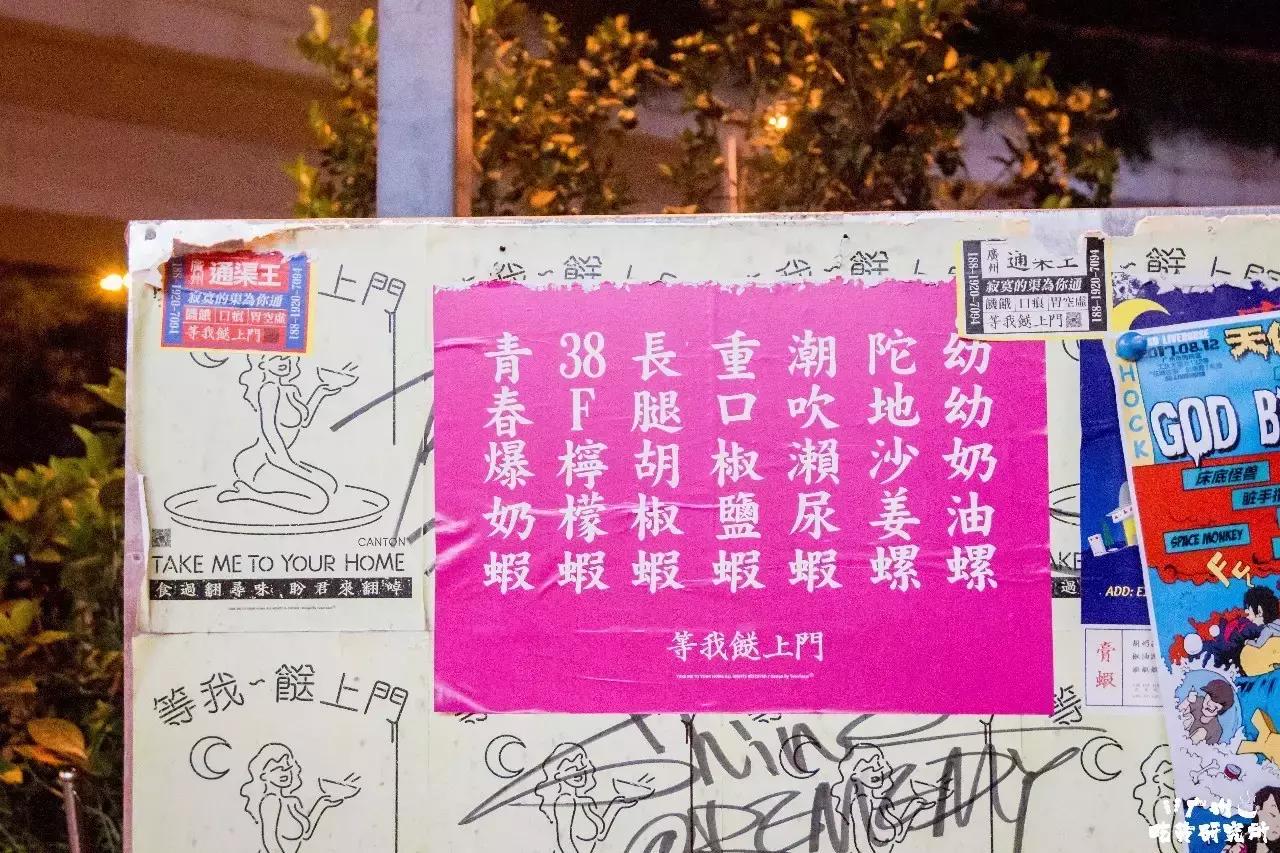 廣州 通渠王
寂寞的渠為你通
饑餓 口痕 胃空虛
等我餸上門
188-1920-7094
188-1920-7094
上門
CANTON
TAKE ME TO YOUR HOME
食過翻尋味 盼君來翻啅
等我~餸上門
幼幼奶油螺
陀地沙姜螺
潮吹瀨尿蝦
重口椒鹽蝦
長腿胡椒蝦
38F檸檬蝦
青春爆奶蝦
等我餸上門
廣州 通渠王
寂寞的渠為你通
饑餓 口痕 胃空虛
等我餸上門
188-1920-7094
188-1920-7094
餸
餸
過
等
HOCK
ADD:
膏蝦
2017.08.12
GOD B
床底怪兽
SPACE MONKEY
广州
吃货研究所